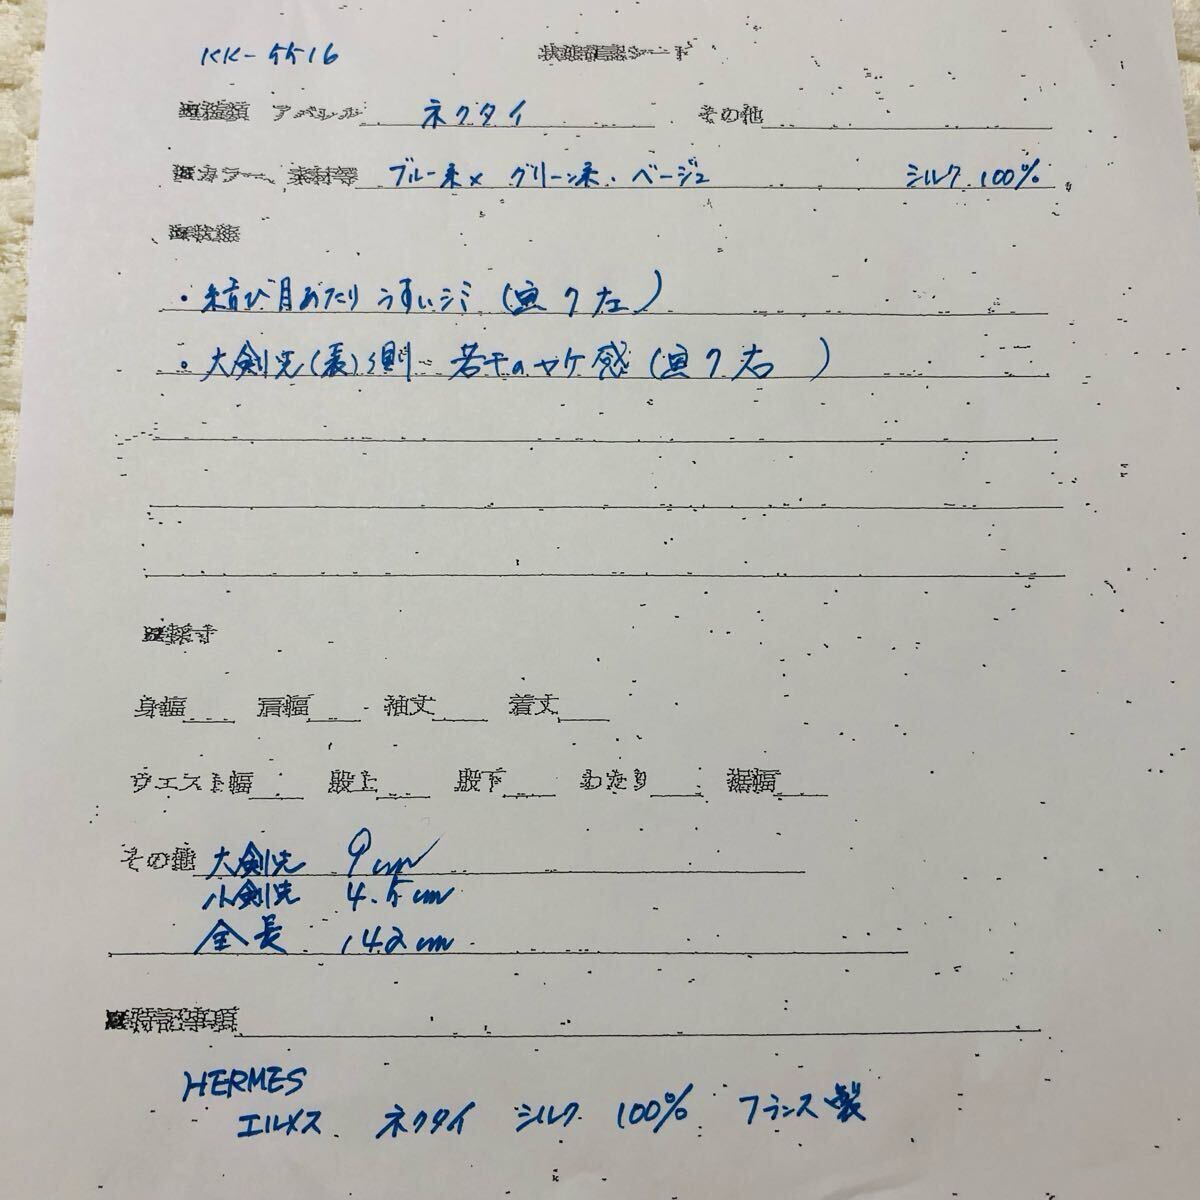 KK-5516 状態確認シート
■種類 アパレル ネクタイ その他
■カラー、素材等 ブルー系× グリーン系・ベージュ シルク 100%
■状態
・結び目あたり うすいシミ (画ク左)
・大剣先(表)側 若干のヤケ感 (画ク右 )
■採寸
身幅 肩幅 袖丈 着丈
ウエスト幅 股上 股下 わたり 裾幅
その他 大剣先 9cm
小剣先 4.5cm
全長 142cm
■特記事項
HERMES
エルメス ネクタイ シルク 100% フランス製